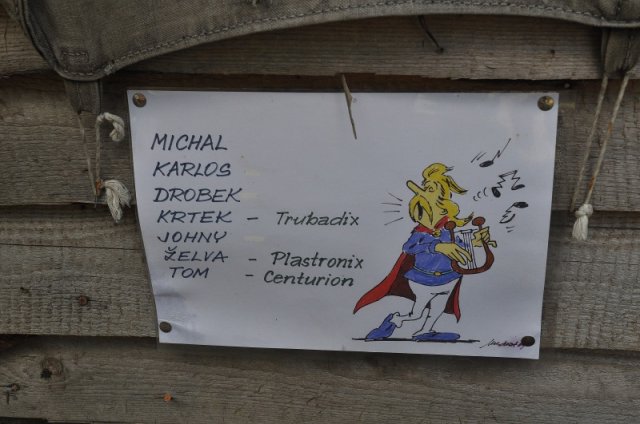 MICHAL
KARLOS
DROBEK
KRTEK - Trubadix
JOHNY
ŽELVA - Plastronix
TOM - Centurion